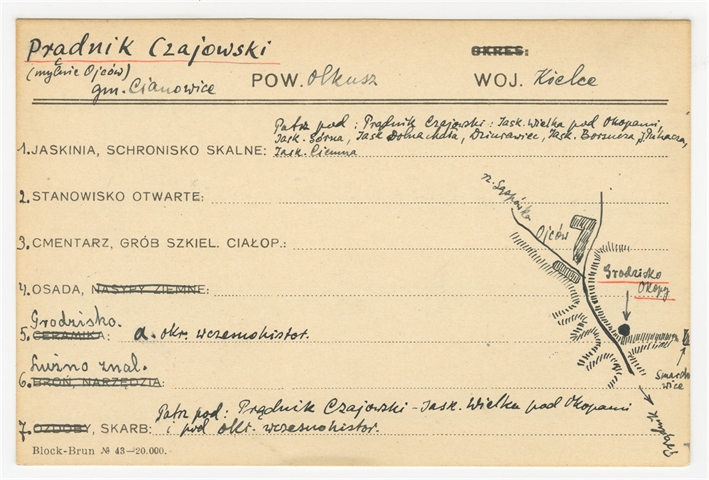 Prądnik Czajowski
OKRES:
(mylnie Ojców)
gm. Cianowice
POW. Olkusz
WOJ. Kielce
Patrz pod: Prądnik Czajowski: Jask. Wielka pod Okopami,
Jask. Górna, Jask Dolna Mała, Dziurawiec, Jask. Borsucza,
1. JASKINIA, SCHRONISKO SKALNE: Jask. Ciemna
2. STANOWISKO OTWARTE:
3. CMENTARZ, GRÓB SZKIEL. CIAŁOP.:
4. OSADA, NASYPY ZIEMNE:
Grodzisko.
5. CERAMIKA: a. okr. wczesnohistor.
Luźno znal.
6. BROŃ, NARZĘDZIA:
Patrz pod: Prądnik Czajowski - Jask. Wielka pod Okopami
7. OZDOBY, SKARB: i pod okr. wczesnohistor.
Block-Brun № 43–20.000.
Ojców
Grodzisko
Okopy
Smardzo
wice
Prądnik